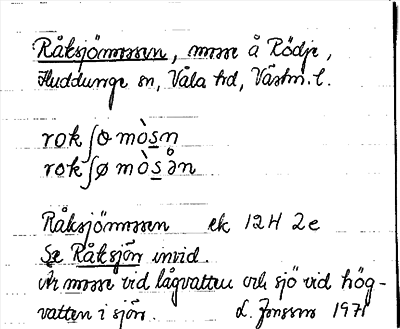 Råksjömossen, mosse å Rödje,
Huddunge sn, Våla hd, Västm. l.
rokʃømòsn
rokʃømòsə̊n
Råksjömossen ek 12H 2e
Se Råksjön invid.
Är mosse vid lågvatten och sjö vid hög-
vatten i sjön. L. Jonsson 1971